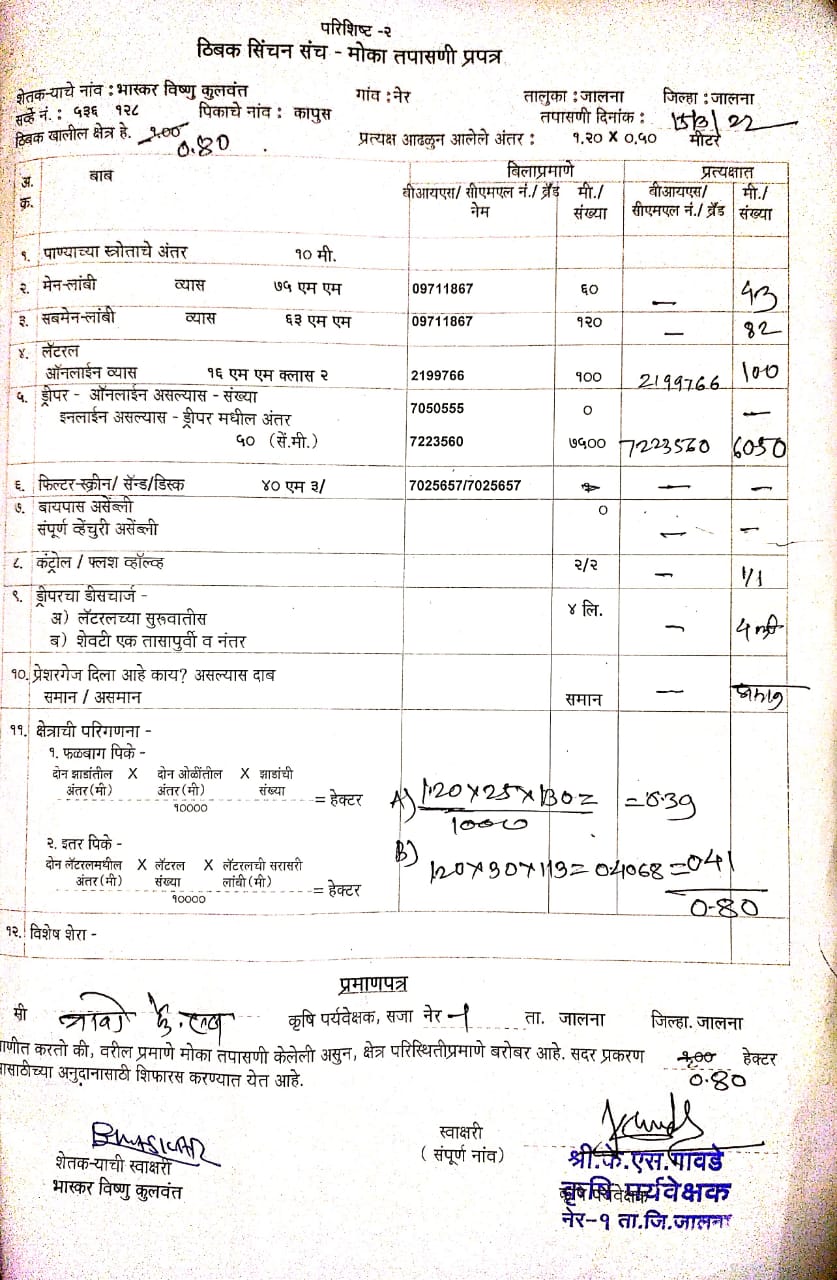 परिशिष्ट -२
ठिबक सिंचन संच - मोका तपासणी प्रपत्र
शेतकऱ्याचे नांव : भास्कर विष्णु कुलवंत गांव : नेर तालुका : जालना जिल्हा : जालना
सर्व्हे नं. : ५३६ १२८ पिकाचे नांव : कापुस तपासणी दिनांक : 15/3/22
ठिबक खालील क्षेत्र हे. १.०० प्रत्यक्ष आढळुन आलेले अंतर : १.२० X ०.५० मीटर
0.80
अ. क्र. बाब बिलाप्रमाणे प्रत्यक्षात
बीआयएस/ सीएमएल नं./ ब्रँड नेम मी./ संख्या बीआयएस/ सीएमएल नं./ ब्रँड मी./ संख्या
१. पाण्याच्या स्त्रोताचे अंतर १० मी.
२. मेन-लांबी व्यास ७५ एम एम 09711867 ६० — 43
३. सबमेन-लांबी व्यास ६३ एम एम 09711867 १२० — 82
४. लॅटरल
ऑनलाईन व्यास १६ एम एम क्लास २ 2199766 १०० 2199766 100
५. ड्रीपर - ऑनलाईन असल्यास - संख्या 7050555 ० —
इनलाईन असल्यास - ड्रीपर मधील अंतर
५० (सें.मी.) 7223560 ७५०० 7223560 6050
६. फिल्टर-स्क्रीन/ सॅन्ड/डिस्क ४० एम ३/ 7025657/7025657 — —
७. बायपास असेंब्ली ०
संपूर्ण व्हेंचुरी असेंब्ली — —
८. कंट्रोल / फ्लश व्हॉल्व्ह २/२ — 1/1
९. ड्रीपरचा डीसचार्ज - ४ लि.
अ) लॅटरलच्या सुरूवातीस — 4 ली
ब) शेवटी एक तासापुर्वी व नंतर
१०. प्रेशरगेज दिला आहे काय? असल्यास दाब
समान / असमान समान — समान
११. क्षेत्राची परिगणना -
१. फळबाग पिके -
दोन झाडांतील X दोन ओळींतील X झाडांची
अंतर (मी) अंतर (मी) संख्या = हेक्टर A) 1.20 X 25 X 130 = = 0.39
१०००० 1000
२. इतर पिके - B)
दोन लॅटरलमधील X लॅटरल X लॅटरलची सरासरी 120 X 30 X 113 = 04068 = 041
अंतर (मी) संख्या लांबी (मी) = हेक्टर
१०००० 0.80
१२. विशेष शेरा -
प्रमाणपत्र
मी कृषि पर्यवेक्षक, सजा नेर -१ ता. जालना जिल्हा. जालना
णीत करतो की, वरील प्रमाणे मोका तपासणी केलेली असुन, क्षेत्र परिस्थितीप्रमाणे बरोबर आहे. सदर प्रकरण १.०० हेक्टर
ासाठीच्या अनुदानासाठी शिफारस करण्यात येत आहे. 0.80
BHASKAR स्वाक्षरी
शेतकऱ्याची स्वाक्षरी (संपूर्ण नांव) श्री.के.एस.गावडे
भास्कर विष्णु कुलवंत कृषि पर्यवेक्षक
नेर-१ ता.जि.जालना